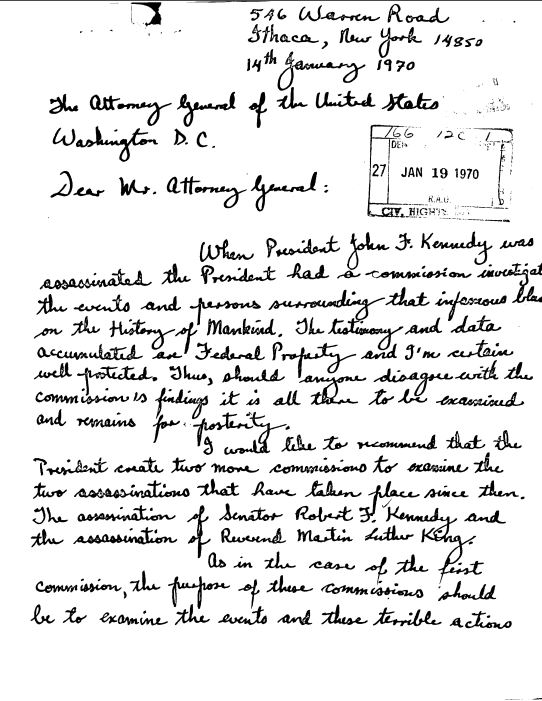 546 Warren Road
Ithaca, New York 14850
14th January 1970
The Attorney General of the United States
Washington D.C.
166 12C 1
27 JAN 19 1970
R.A.O.
CIV. RIGHTS
Dear Mr. Attorney General:
When President John F. Kennedy was
assassinated the President had a commission investigat
the events and persons surrounding that infamous
on the History of Mankind. The testimony and data
accumulated are Federal Property and I'm certain
well protected. Thus, should anyone disagree with the
commission's findings it is all there to be examined
and remains for posterity.
I would like to recommend that the
President create two more commissions to examine the
two assassinations that have taken place since then.
The assassination of Senator Robert F. Kennedy and
the assassination of Reverend Martin Luther King.
As in the case of the first
commission, the purpose of these commissions should
be to examine the events and these terrible actions